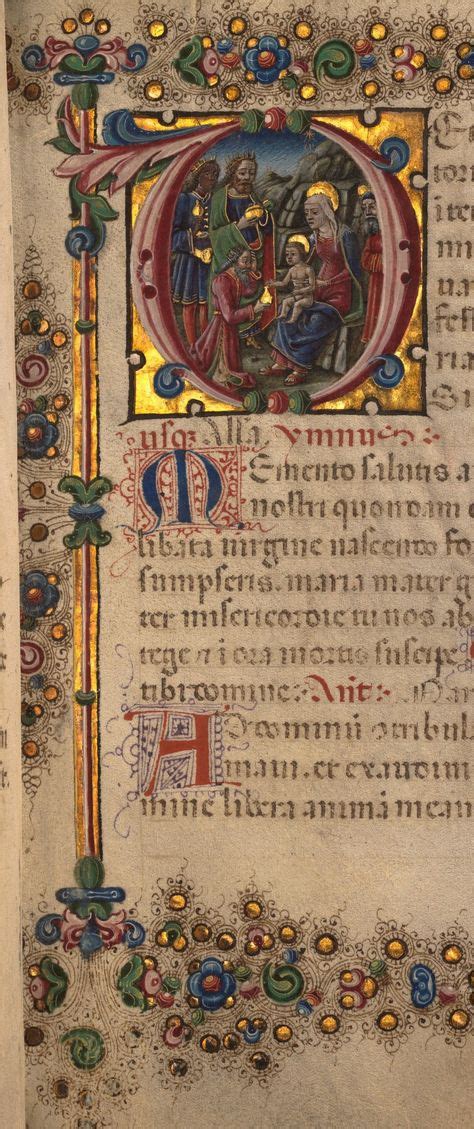 D
E
tor
ite
mi
ua
fest
ria
Si
usq; Alla. ymnus:
Memento salutis a
nostri quondam
libata uirgine nascendo fo
sumpseris. maria mater g
ter misericordie tu nos ab
tege et i ora mortis suscipe
tibi domine: Ant:
AD dominū tribula
maui. et exaudiui
mine libera animā meam